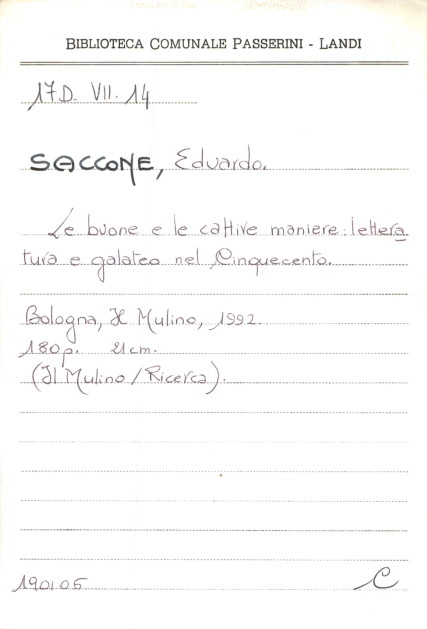 BIBLIOTECA COMUNALE PASSERINI - LANDI
17D. VII. 14
SACCONE, Eduardo.
Le buone e le cattive maniere: lettera
tura e galateo nel Cinquecento.
Bologna, Il Mulino, 1992.
180p. 21cm.
(Il Mulino/Ricerca).
190105
C